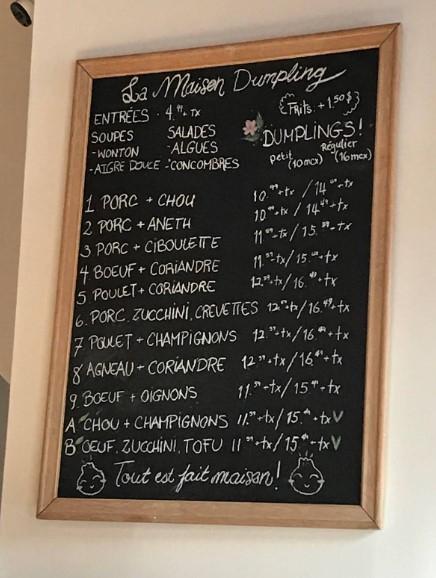 La Maison Dumpling
ENTRÉES · 4.⁹⁹+tx
Frits. +1.50$
SOUPES
-WONTON
-AIGRE DOUCE
SALADES
-ALGUES
-CONCOMBRES
DUMPLINGS!
petit (10mcx)
Régulier (16mcx)
1 PORC + CHOU 10.⁹⁹+tx / 14.⁴⁹+tx
2 PORC + ANETH 10.⁹⁹+tx / 14.⁴⁹+tx
3 PORC + CIBOULETTE 11.+tx / 15.+tx
4 BOEUF + CORIANDRE 11.+tx / 15.+tx
5 POULET + CORIANDRE 12.+tx / 16.+tx
6. PORC, ZUCCHINI, CREVETTES 12.+tx / 16.⁴⁹+tx
7 POULET + CHAMPIGNONS 12.+tx / 16.+tx
8 AGNEAU + CORIANDRE 12.+tx / 16.+tx
9. BOEUF + OIGNONS 11.+tx / 15.+tx
A CHOU + CHAMPIGNONS 11.+tx / 15.+tx V
B OEUF, ZUCCHINI, TOFU 11.+tx / 15.+tx V
Tout est fait maison!